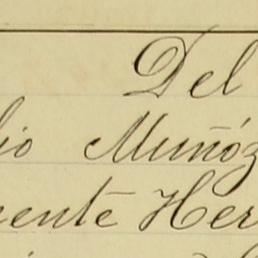 Del
lio Muñóz
cente Her